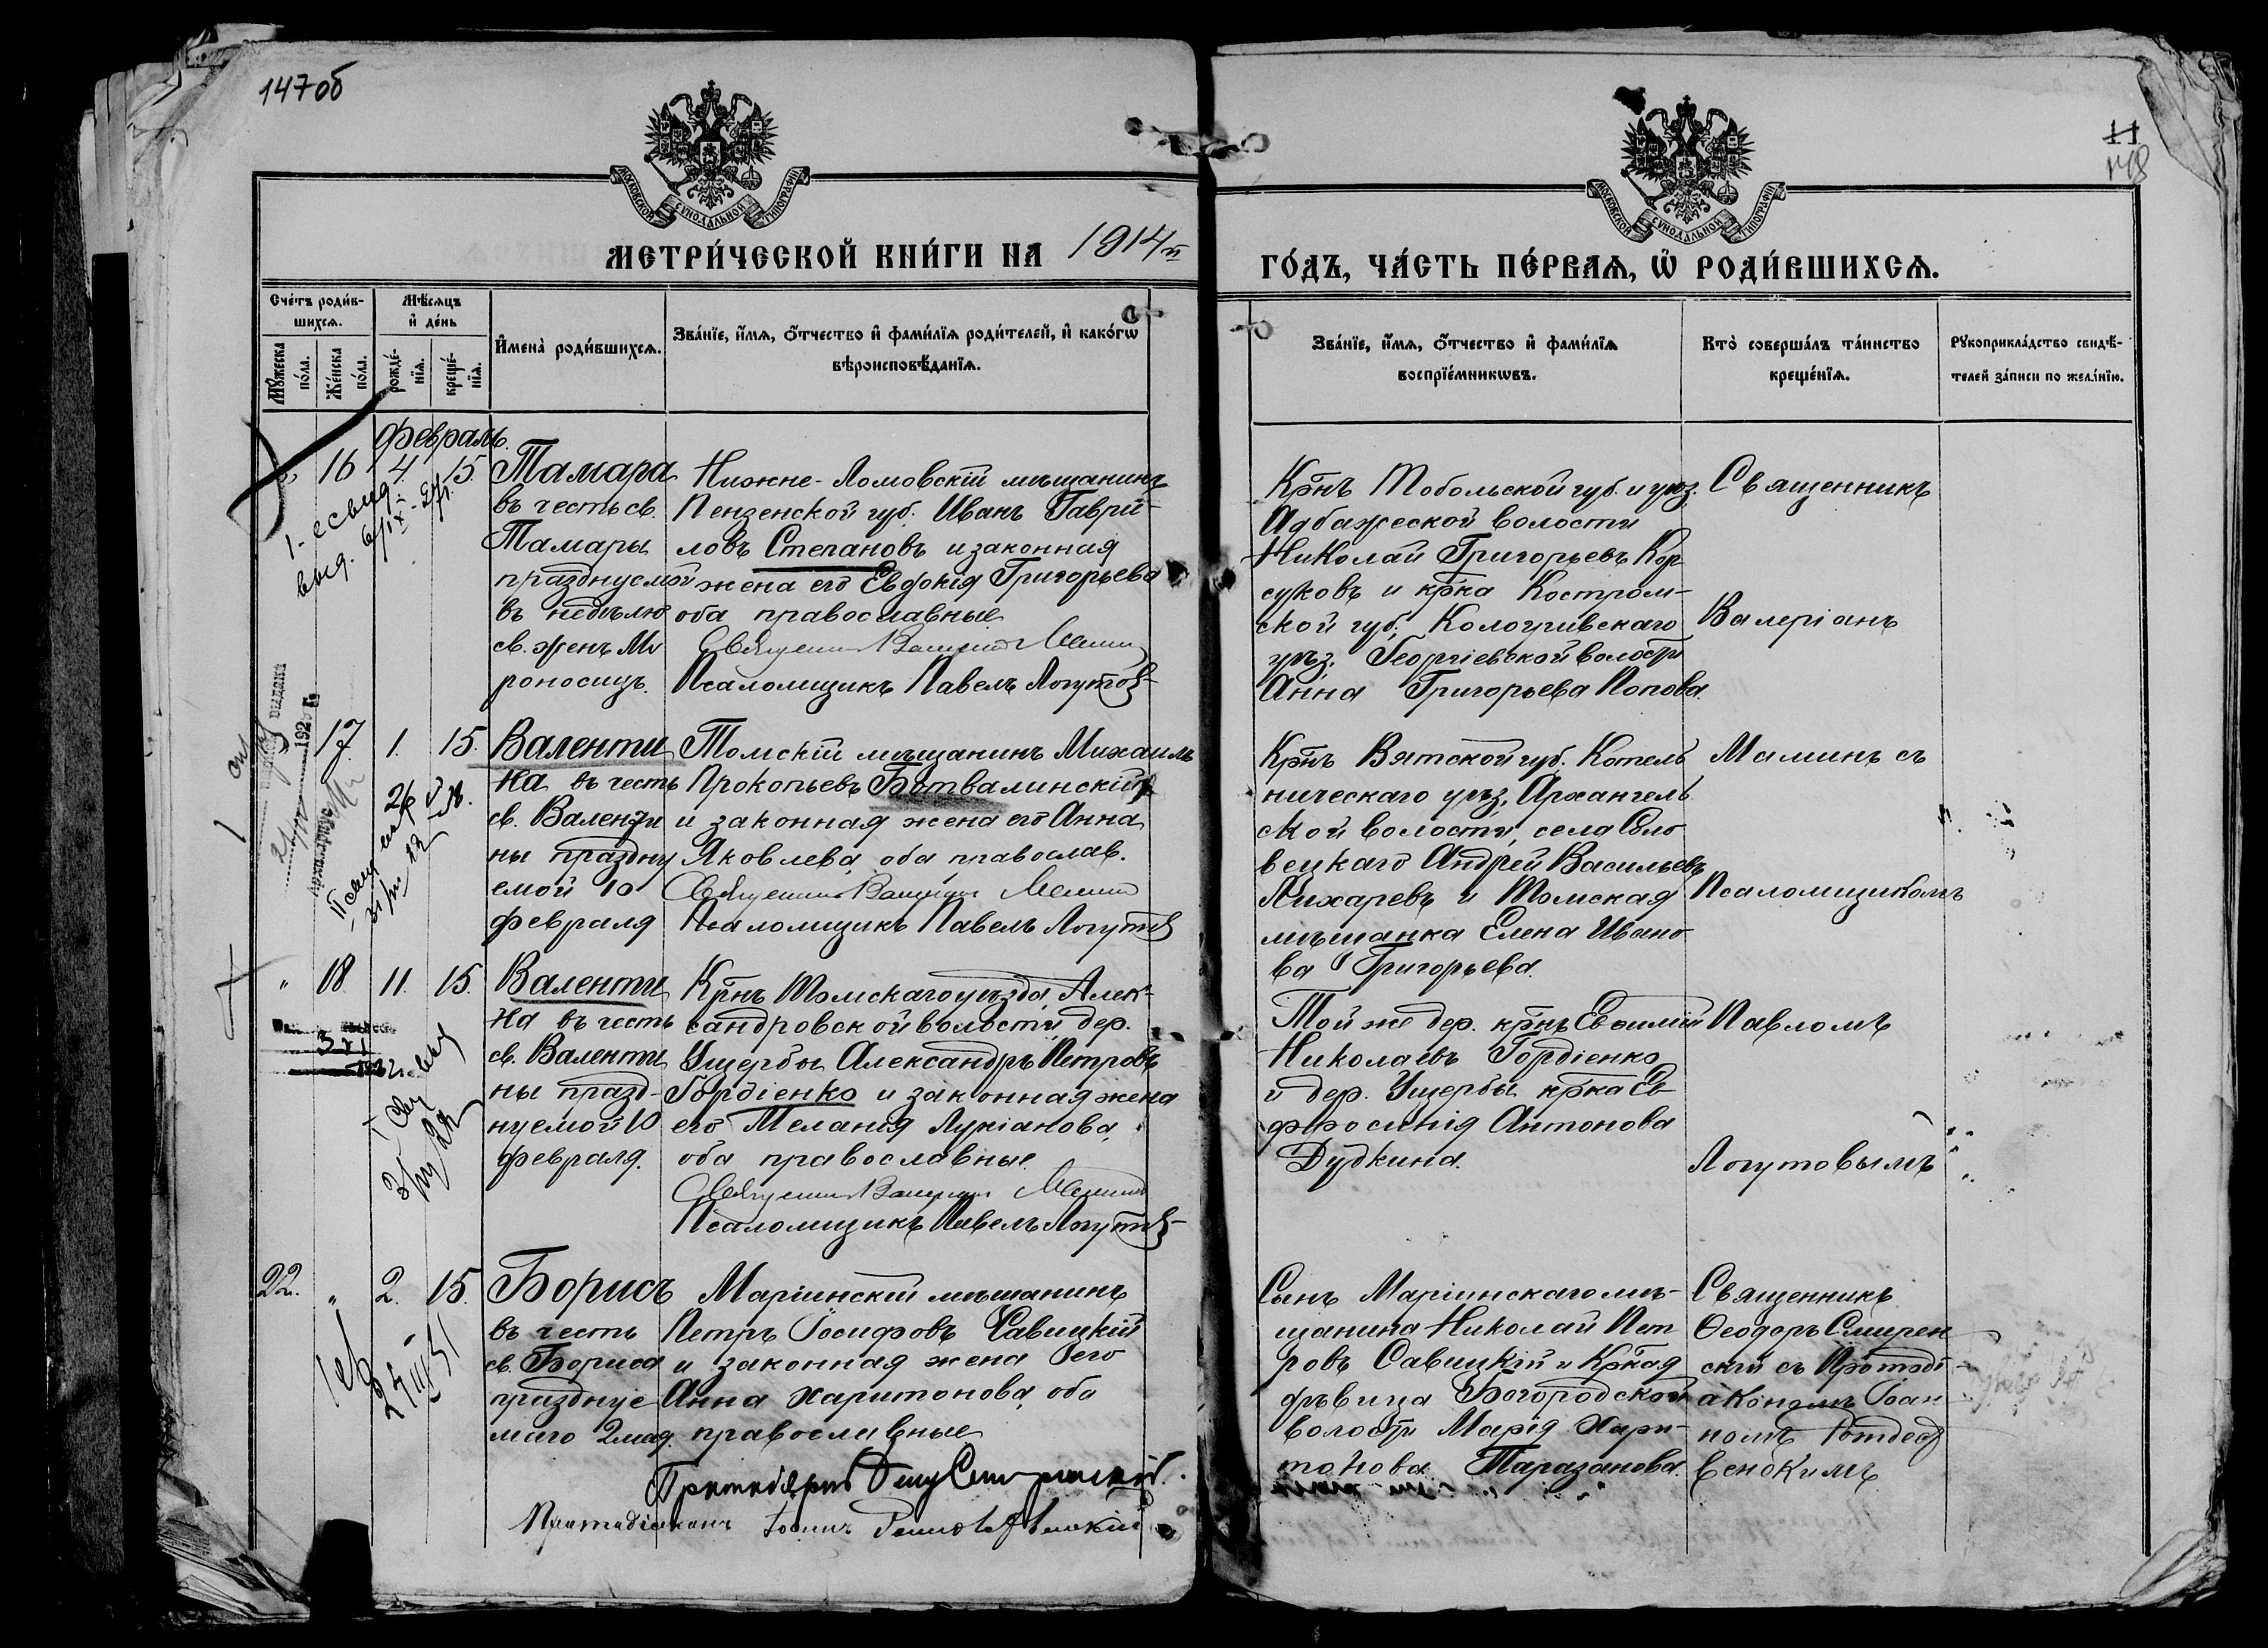 147об
11
148
МОСКОВСКОЙ СУНОДАЛЬНОЙ ТИПОГРАФІИ
МОСКОВСКОЙ СУНОДАЛЬНОЙ ТИПОГРАФІИ
МЕТРИ́ЧЕСКОЙ КНИ́ГИ НА 1914й
ГО́ДЪ, ЧА́СТЬ ПЕ́РВАѦ, Ѡ҆ РОДИ́ВШИХСѦ.
Сче́тъ роди́в-
шихсѧ.
Мѣ́сѧцъ
и҆ де́нь
Мꙋ́жеска
по́ла.
Же́нска
по́ла.
рожде́-
нїѧ.
креще́-
нїѧ.
И҆мена̀ роди́вшихсѧ.
Зва́нїе, и҆́мѧ, ѻ҆́тчество и҆ фами́лїѧ роди́телей, и҆ како́гѡ
вѣроисповѣ́данїѧ.
Зва́нїе, и҆́мѧ, ѻ҆́тчество и҆ фами́лїѧ
воспрїе́мникѡвъ.
Кто̀ соверша́лъ та́инство
креще́нїѧ.
Рꙋкоприкла́дство свидѣ́-
телей за́писи по жела́нїю.
Февраль.
16 4. 15. Тамара
въ честь св.
Тамары
празднуемой
въ недѣлю
св. женъ Мѵ
роносицъ.
Нижне-Ломовскій мѣщанинъ
Пензенской губ. Иванъ Гаврі-
ловъ Степановъ и законная
жена его Евдокія Григорьева
оба православные
Псаломщикъ Павелъ Логутов
Крнъ Тобольской губ. и уѣз.
Адбажеской волости
Николай Григорьевъ Кор
суковъ и крка Костром-
ской губ. Кологривскаго
уѣз. Георгіевской волости
Анна Григорьева Попова.
Священникъ
Валеріанъ
17 1. 15. Валенти
на въ честь
св. Валенти
ны праздну
емой 10
февраля
Томскій мѣщанинъ Михаилъ
Прокопьевъ Ботвалинскій
и законная жена его Анна
Яковлева, оба православ.
Псаломщикъ Павелъ Логутов
Крнъ Вятской губ. Котель
ническаго уѣз. Архангель
ской волости, села Соло
вецкаго Андрей Васильевъ
Лихаревъ и Томская
мѣщанка Елена Ивано
ва Григорьева.
Маминъ съ
Псаломщикомъ
" 18 11. 15. Валенти
на въ честь
св. Валенти
ны празд-
нуемой 10
февраля.
Крнъ Томскаго уѣзда, Алек-
сандровской волости, дер.
Ущербы Александръ Петровъ
Гордіенко и законная жена
его Меланія Лукіанова,
оба православные.
Псаломщикъ Павелъ Логутов
Той же дер. крнъ Евѳимій
Николаевъ Гордіенко
и дер. Ущербы крка Ев
фросинія Антонова
Дудкина.
Павломъ
Логутовымъ
22. " 2. 15. Борисъ
въ честь
св. Бориса
праздауе
маго 2 мая.
Маріинскій мѣщанинъ
Петръ Іосифовъ Савицкій
и законная жена его
Анна Харитонова, оба
православные
Протодіаконъ Іоаннъ
Сынъ Маріинскаго мѣ-
щанина Николай Пет
ровъ Савицкій и Кркая
дѣвица Богородской
волости Марія Хари-
тонова Таразанова.
Священникъ
Ѳеодоръ Смирен
скій съ Протоді-
акономъ Іоан
номъ Рождест
венскимъ